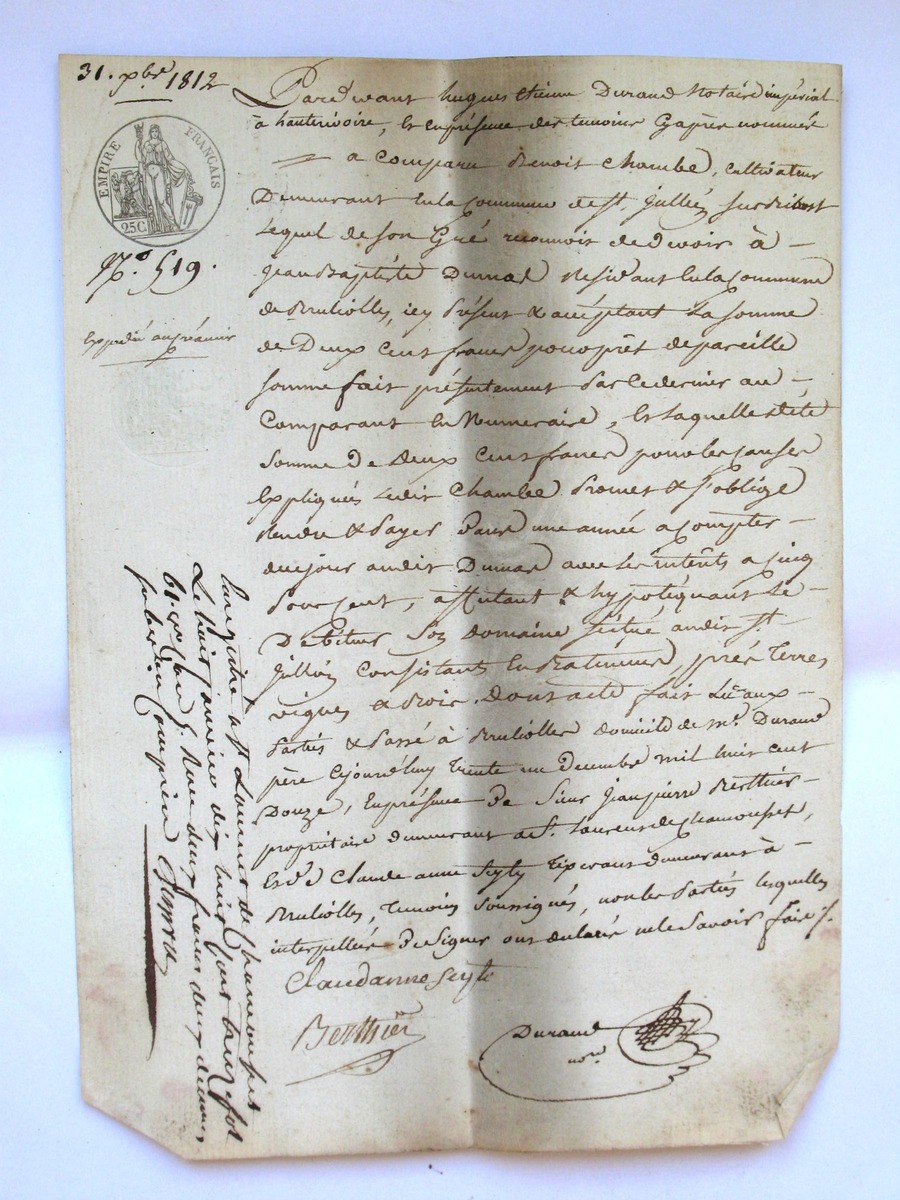 31. xbre 1812
EMPIRE FRANÇAIS
25C.
No. 519.
Expedié au préancier
Pardevant hugues Etienne Durand Notaire impérial
à hauterivoire, & en présence des temoins Cyaprès nommés
a Comparu Benoit Chambe, Cultivateur
Demeurant En la Commune de St. Jullien sur Bibost
Lequel de son Gré reconnoit de devoir à
Jean Baptiste Dumas Residant En la Commune
de Brulioles, icy Présent & acceptant La somme
de Deux Cent francs pour prêt de pareille
somme fait présentement Par Ce dernier au
Comparant En Numeraire, Et Laquelle
somme De Deux Cent francs pour les causes
Expliquées Ledit Chambe Promet & s'oblige
Rendre & Payer Dans une année a Compter
du jour audit Dumas avec Les intérêts a Cinq
Pour Cent, affectant & hypotéquant Le
Débiteur Son Domaine Situé audit St.
Jullien Consistant En Batiments, prés Terres
vignes & Bois. Dont acte fait Lu aux
Parties & Passé à Brulioles domicile de mr. Durand
père Cejourd'huy Trente un Decembre mil huit Cent
Douze, En présence de Sieur Jean pierre Berthier
propriétaire demeurant a St. Laurent de Chamousset,
Et de Claude anne Seyty Tixerant demeurant à
Brulioles, Temoins Soussignés, non les Parties lesquelles
interpellées de signer ont declaré ne le Savoir faire /.
Claudanne Seyte
Berthier
Durand
nore.
Enregistré a St Laurent de Chamousset
Le huit janvier dix huit Cent treize fol
61. Reçu deux francs deux decimes
subvention Comprise